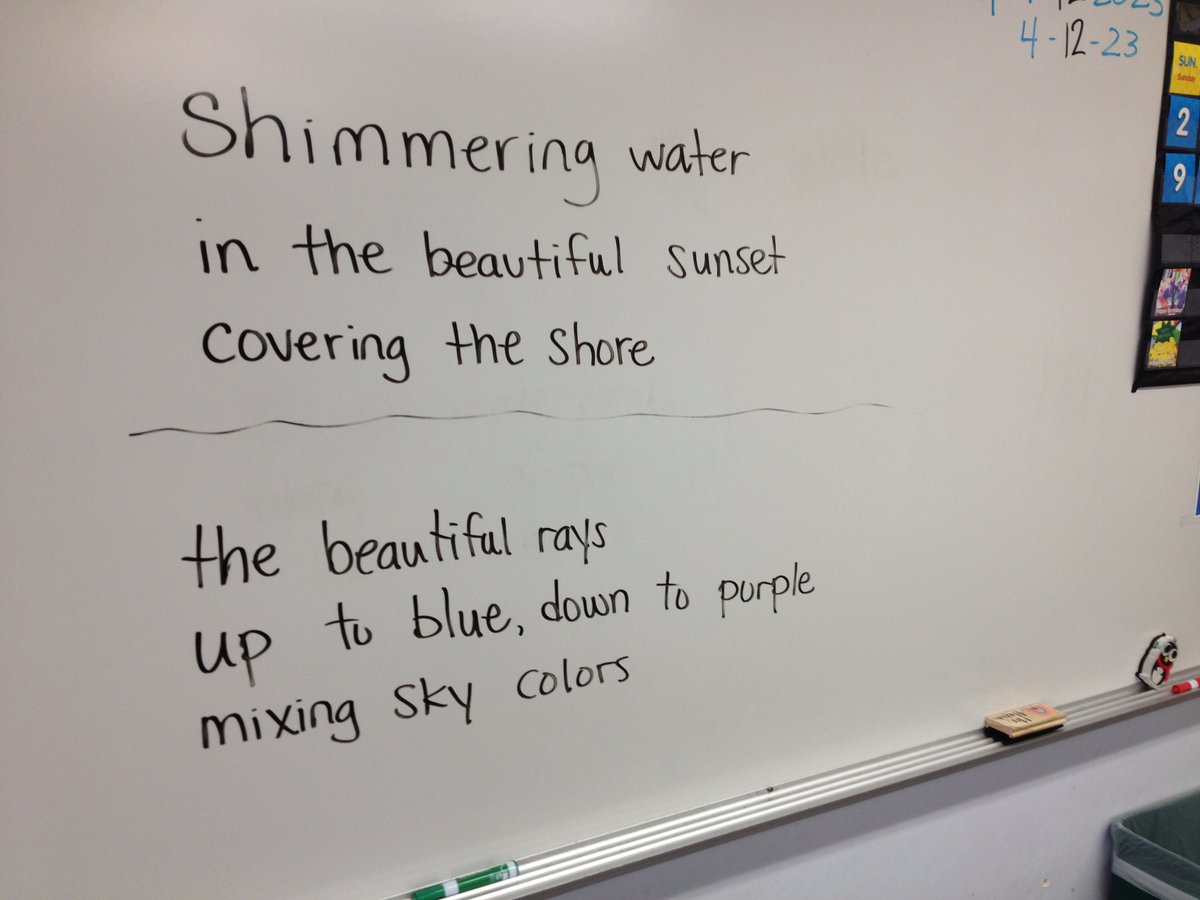 4-12-23
Shimmering water
in the beautiful sunset
covering the shore
the beautiful rays
up to blue, down to purple
mixing sky colors
SUN.
Sunday
2
9